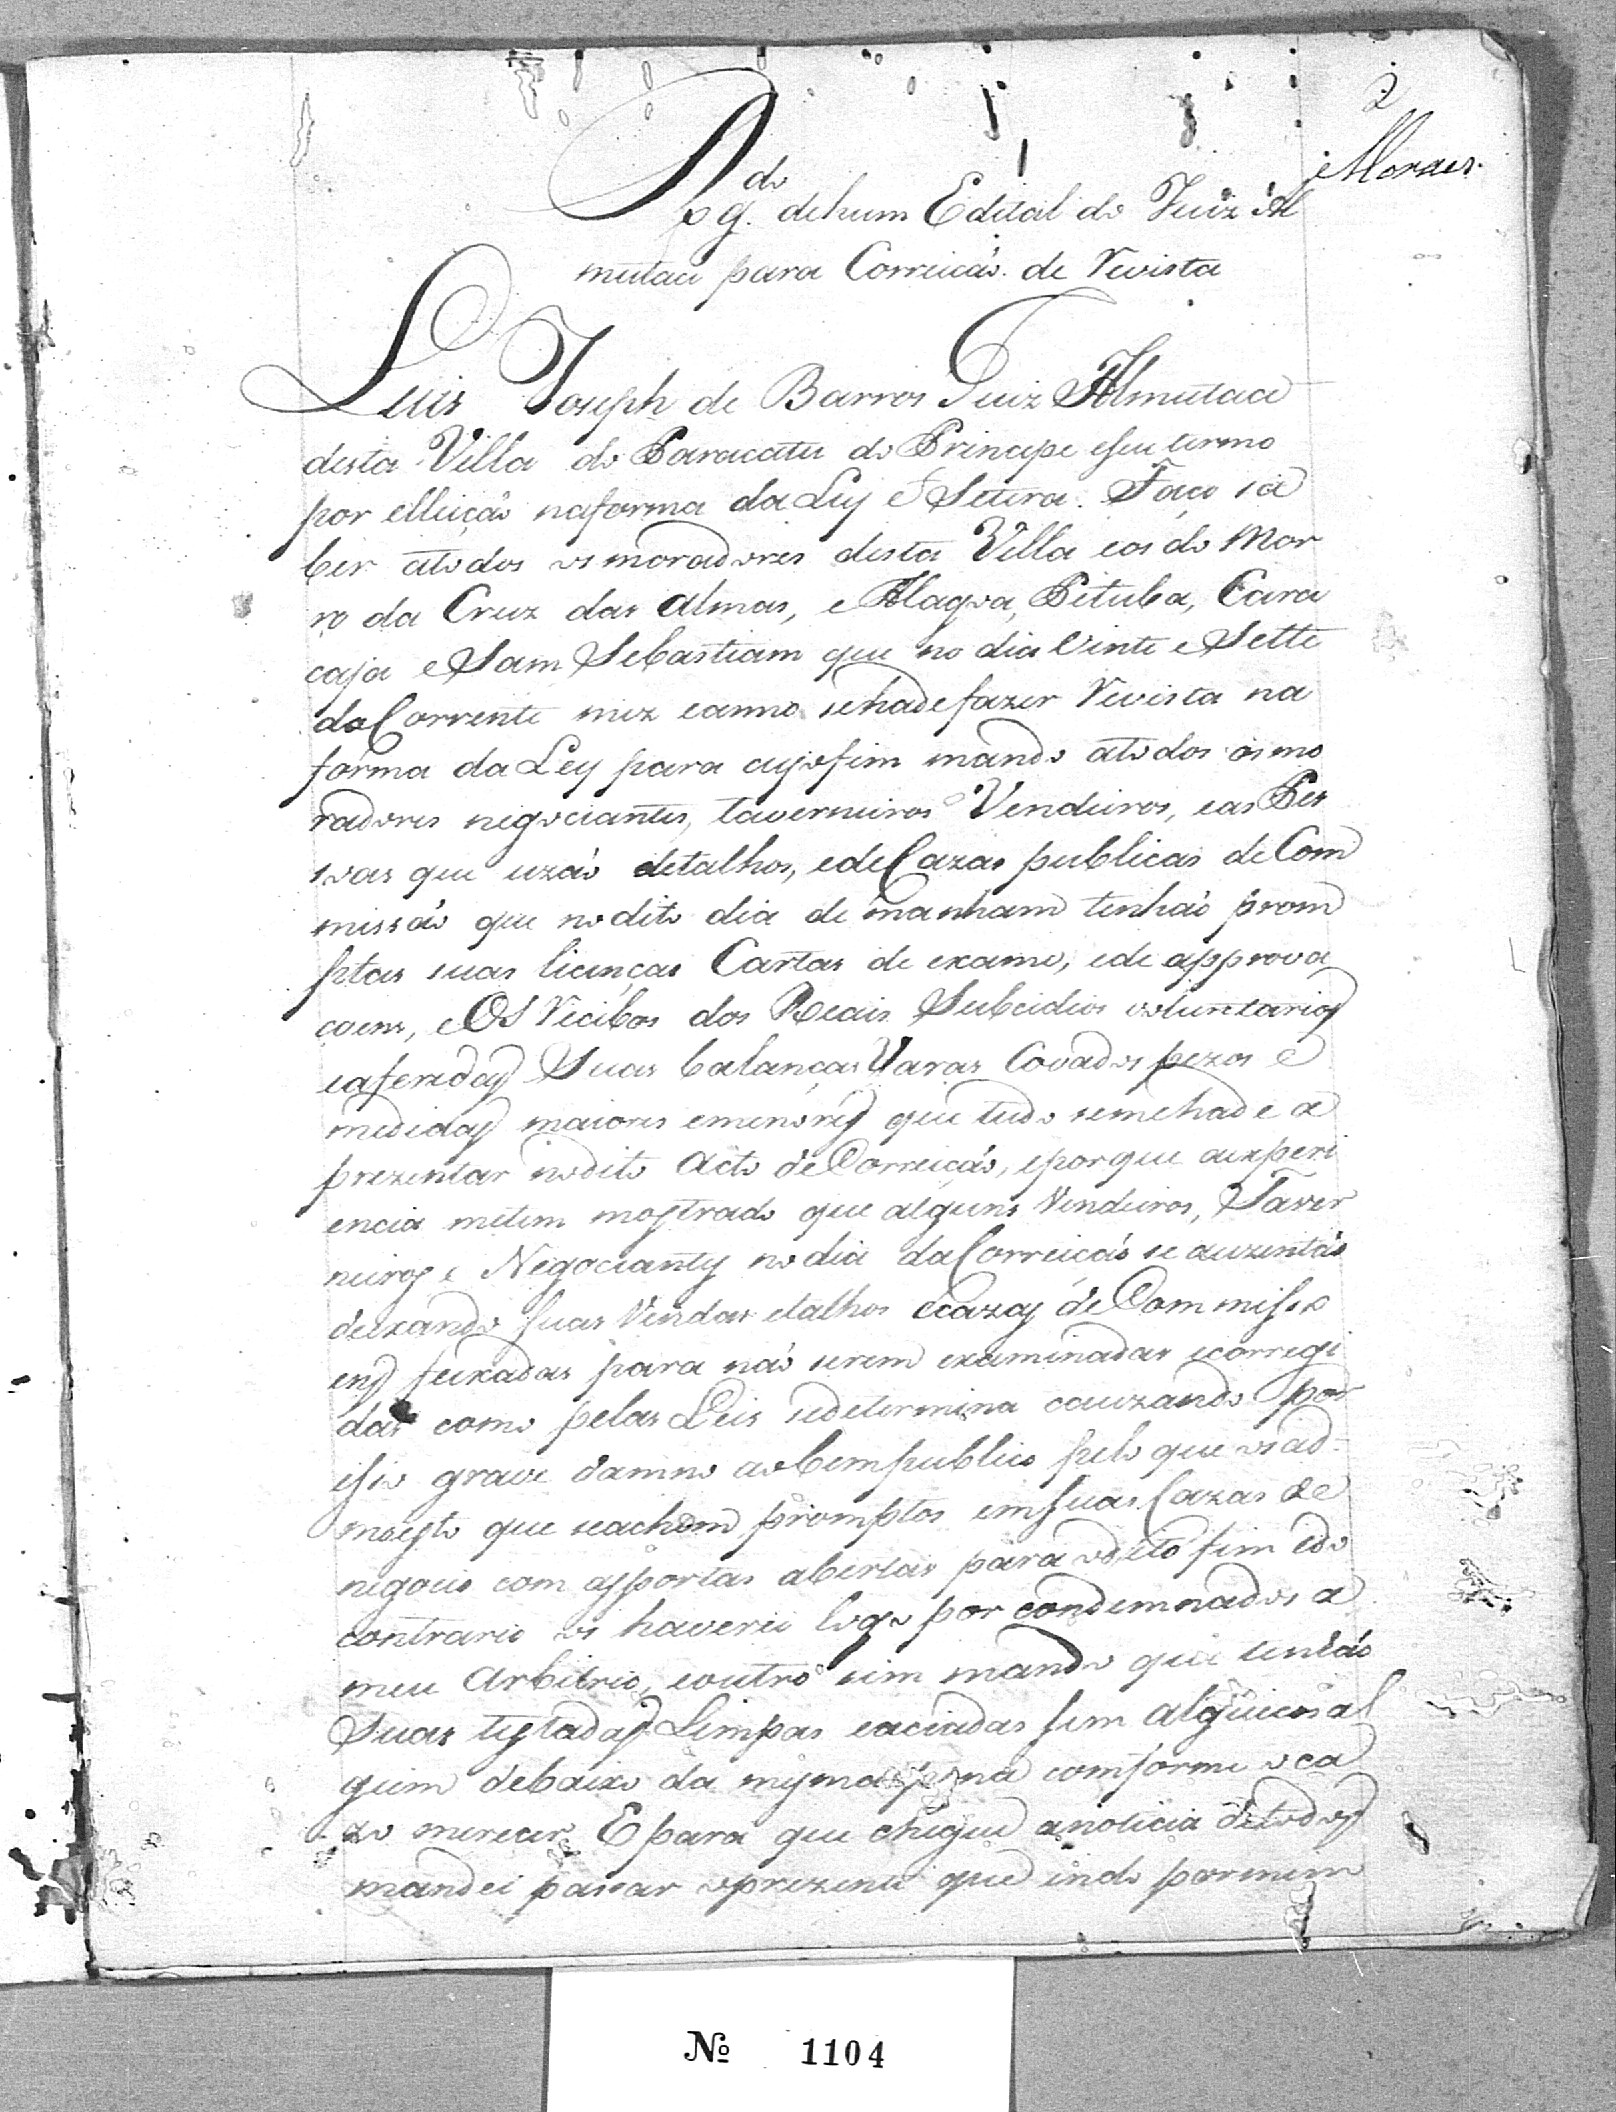 2
Moraes.
Rg.do dehum Edital do Juiz Al
mutace para Correicaõ de Revista
Luis Joseph de Barros Juiz Almutace
desta Villa do Paracatu do Principe eseu termo
por elleiçaõ naforma da Ley e Setera. Faço sa
ber atodos os moradores desta Villa eos do Mor
ro da Cruz das Almas, e Alagoa, Pituba, Cara
caja e Sam Sebastiam que no dia Vinte e Sette
do Corrente mez eanno sehadefazer Revista na
forma da Ley para cujofim mando atodos os mo
radores negociantes, taverneiros Vendeiros, eas Pes
soas que uzaõ detalhos, ede Cazas publicas de Com
missaõ que nodito dia de manham tenhaõ prom
ptas suas licenças Cartas de exame, ede approva
coens, e OS Recibos dos Reais Subcidios voluntarios
eaferidas Suas balanças Varas Covados pezos e
medidas maiores emenores que tudo semehade a
prezentar nodito Acto de Correicaõ, eporque aexperi
encia metem mostrado que alguns Vendeiros, Taver
neiros e Negociantes nodia da Correicaõ se auzentaõ
deixando suas Vendas etalhos ecazas de Commisso
ens feixadas para naõ serem examinadas ecorregi
das como pelas Leis sedetermina cauzando por
isso grave damno aobempublico pelo que osad-
moesto que seachem promptos emsuas Cazas de
negocio com asportas abertas para odito fim edo
contrario os haverei logo por condemnados a
meu Arbitrio, eoutro sim mando que tenhaõ
Suas testadas Limpas eaciadas sem alguicos al
gum debaixo da mesma pena comforme oca
zo merecer E para que chegue anoticia detodos
mandei passar oprezente que indo pormim
№ 1104